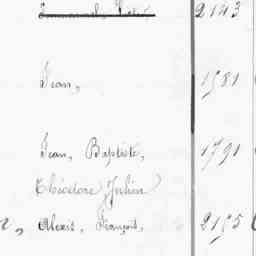 2143
Jean, 1581
Jean, Baptiste, 1791
Théodore Julien
Alexis, François, 2155